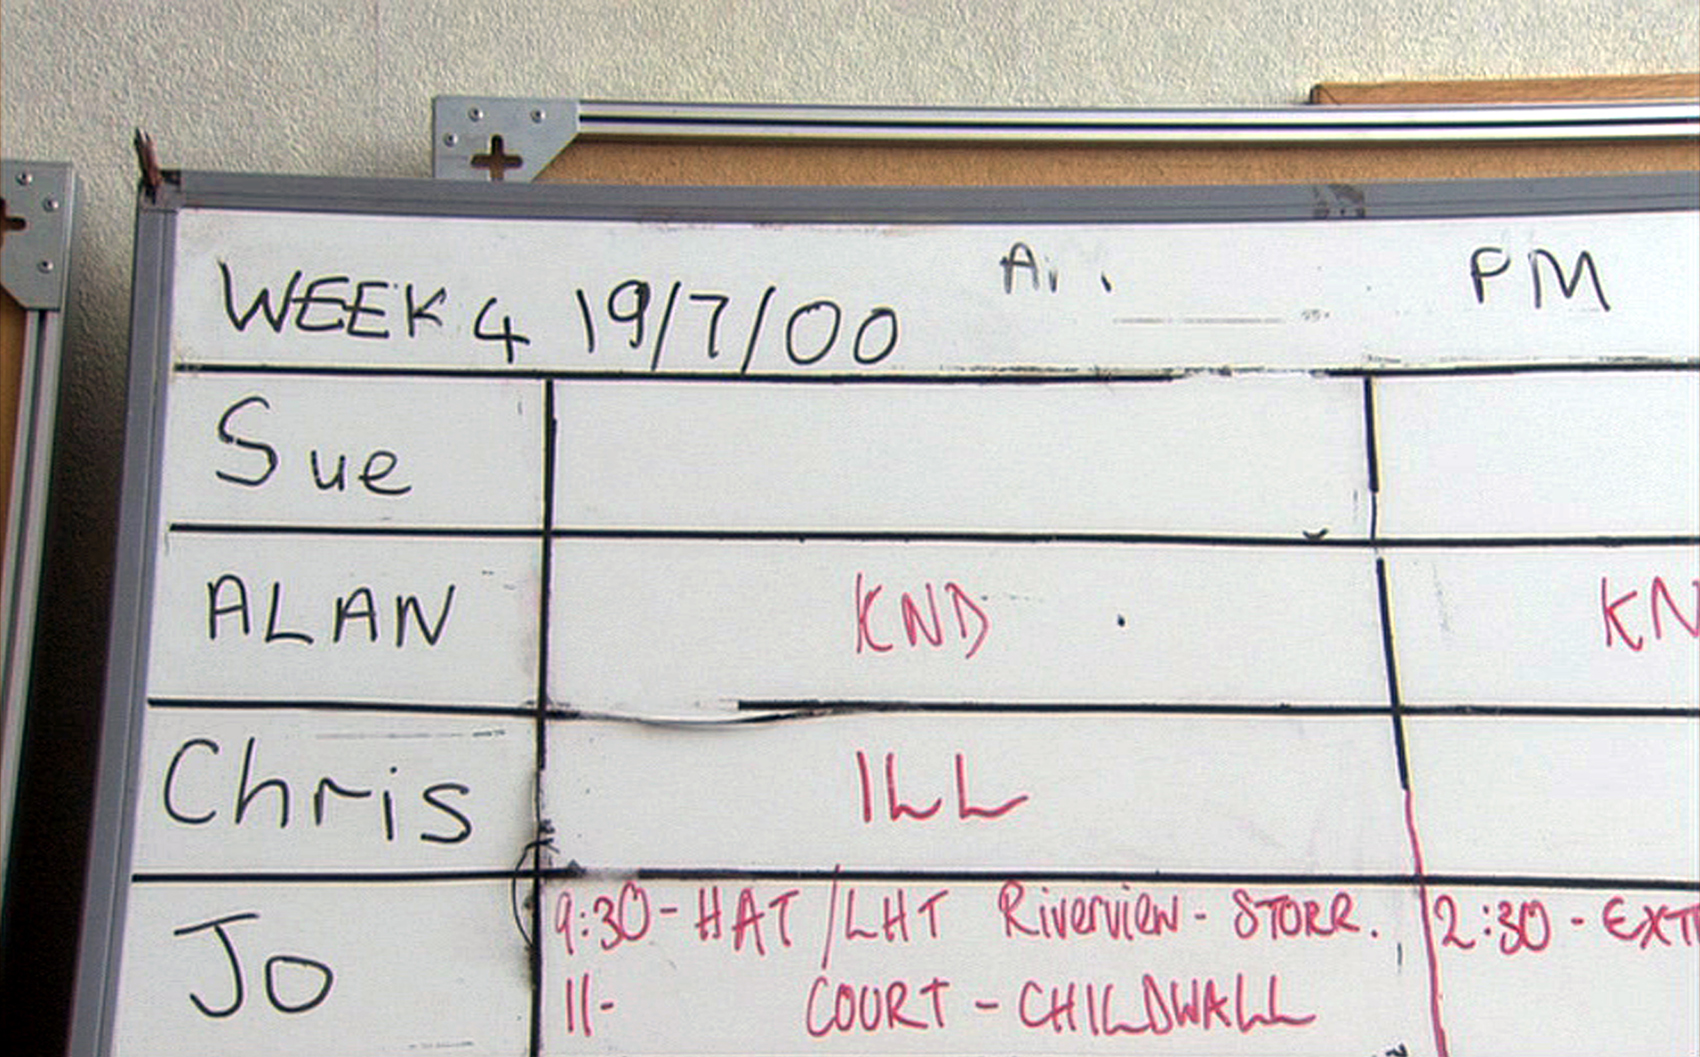 WEEK 4 19/7/00 PM
Sue
ALAN KND KN
Chris ILL
Jo 9:30 - HAT / LHT Riverview - STORR. 2:30 - EXT
11- COURT - CHILDWALL